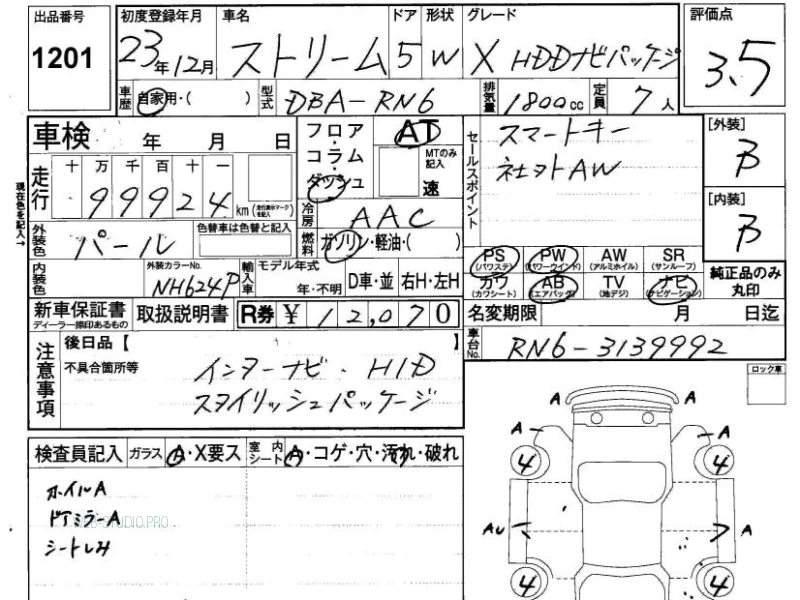 出品番号 初度登録年月 車名 ドア 形状 グレード 評価点
1201 23年12月 ストリーム 5 W X HDDナビパッケージ 3.5
車歴 自家用・( ) 型式 DBA-RN6 排気量 1800cc 定員 7人
車検 年 月 日 フロア・コラム・ダッシュ AT MTのみ記入 速
セールスポイント スマートキー
社ヨトAW
[外装] B
走行 十 万 千 百 十 一
99924 km (走行表示マークを記入)
冷房 AAC
[内装] B
現在色を記入→
外装色 パール 色替車は色替と記入
燃料 ガソリン・軽油・( )
PS (パワステ) PW (パワーウインド) AW (アルミホイル) SR (サンルーフ)
カワ (カワシート) AB (エアバッグ) TV (地デジ) ナビ (ナビゲーション)
純正品のみ丸印
内装色 外装カラーNo. NH624P 輸入車 モデル年式 年・不明 D車・並 右H・左H
新車保証書 ディーラー捺印あるもの 取扱説明書 R券 ¥ 12,070
名変期限 月 日迄
車台No. RN6-3139992
注意事項 後日品【 】
不具合箇所等 インターナビ・HID
スタイリッシュパッケージ
ロック車
検査員記入 ガラス A・X要ス 室内シート A・コゲ・穴・汚れ・破れ
ホイルA
ドアミラーA
シートしみ
A A
A A
4 4
AU A
4 4